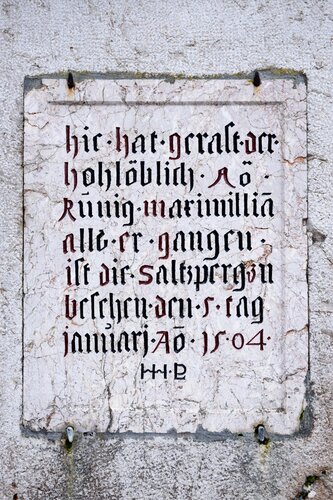 hie · hat · gerast · der
hohlöblich · Rö ·
Kűnig · maximilliā
alls · er · gangen ·
ist · die · Saltzperg · zu
besehen · den · 5 · tag
januarj · Aō · 1504 ·